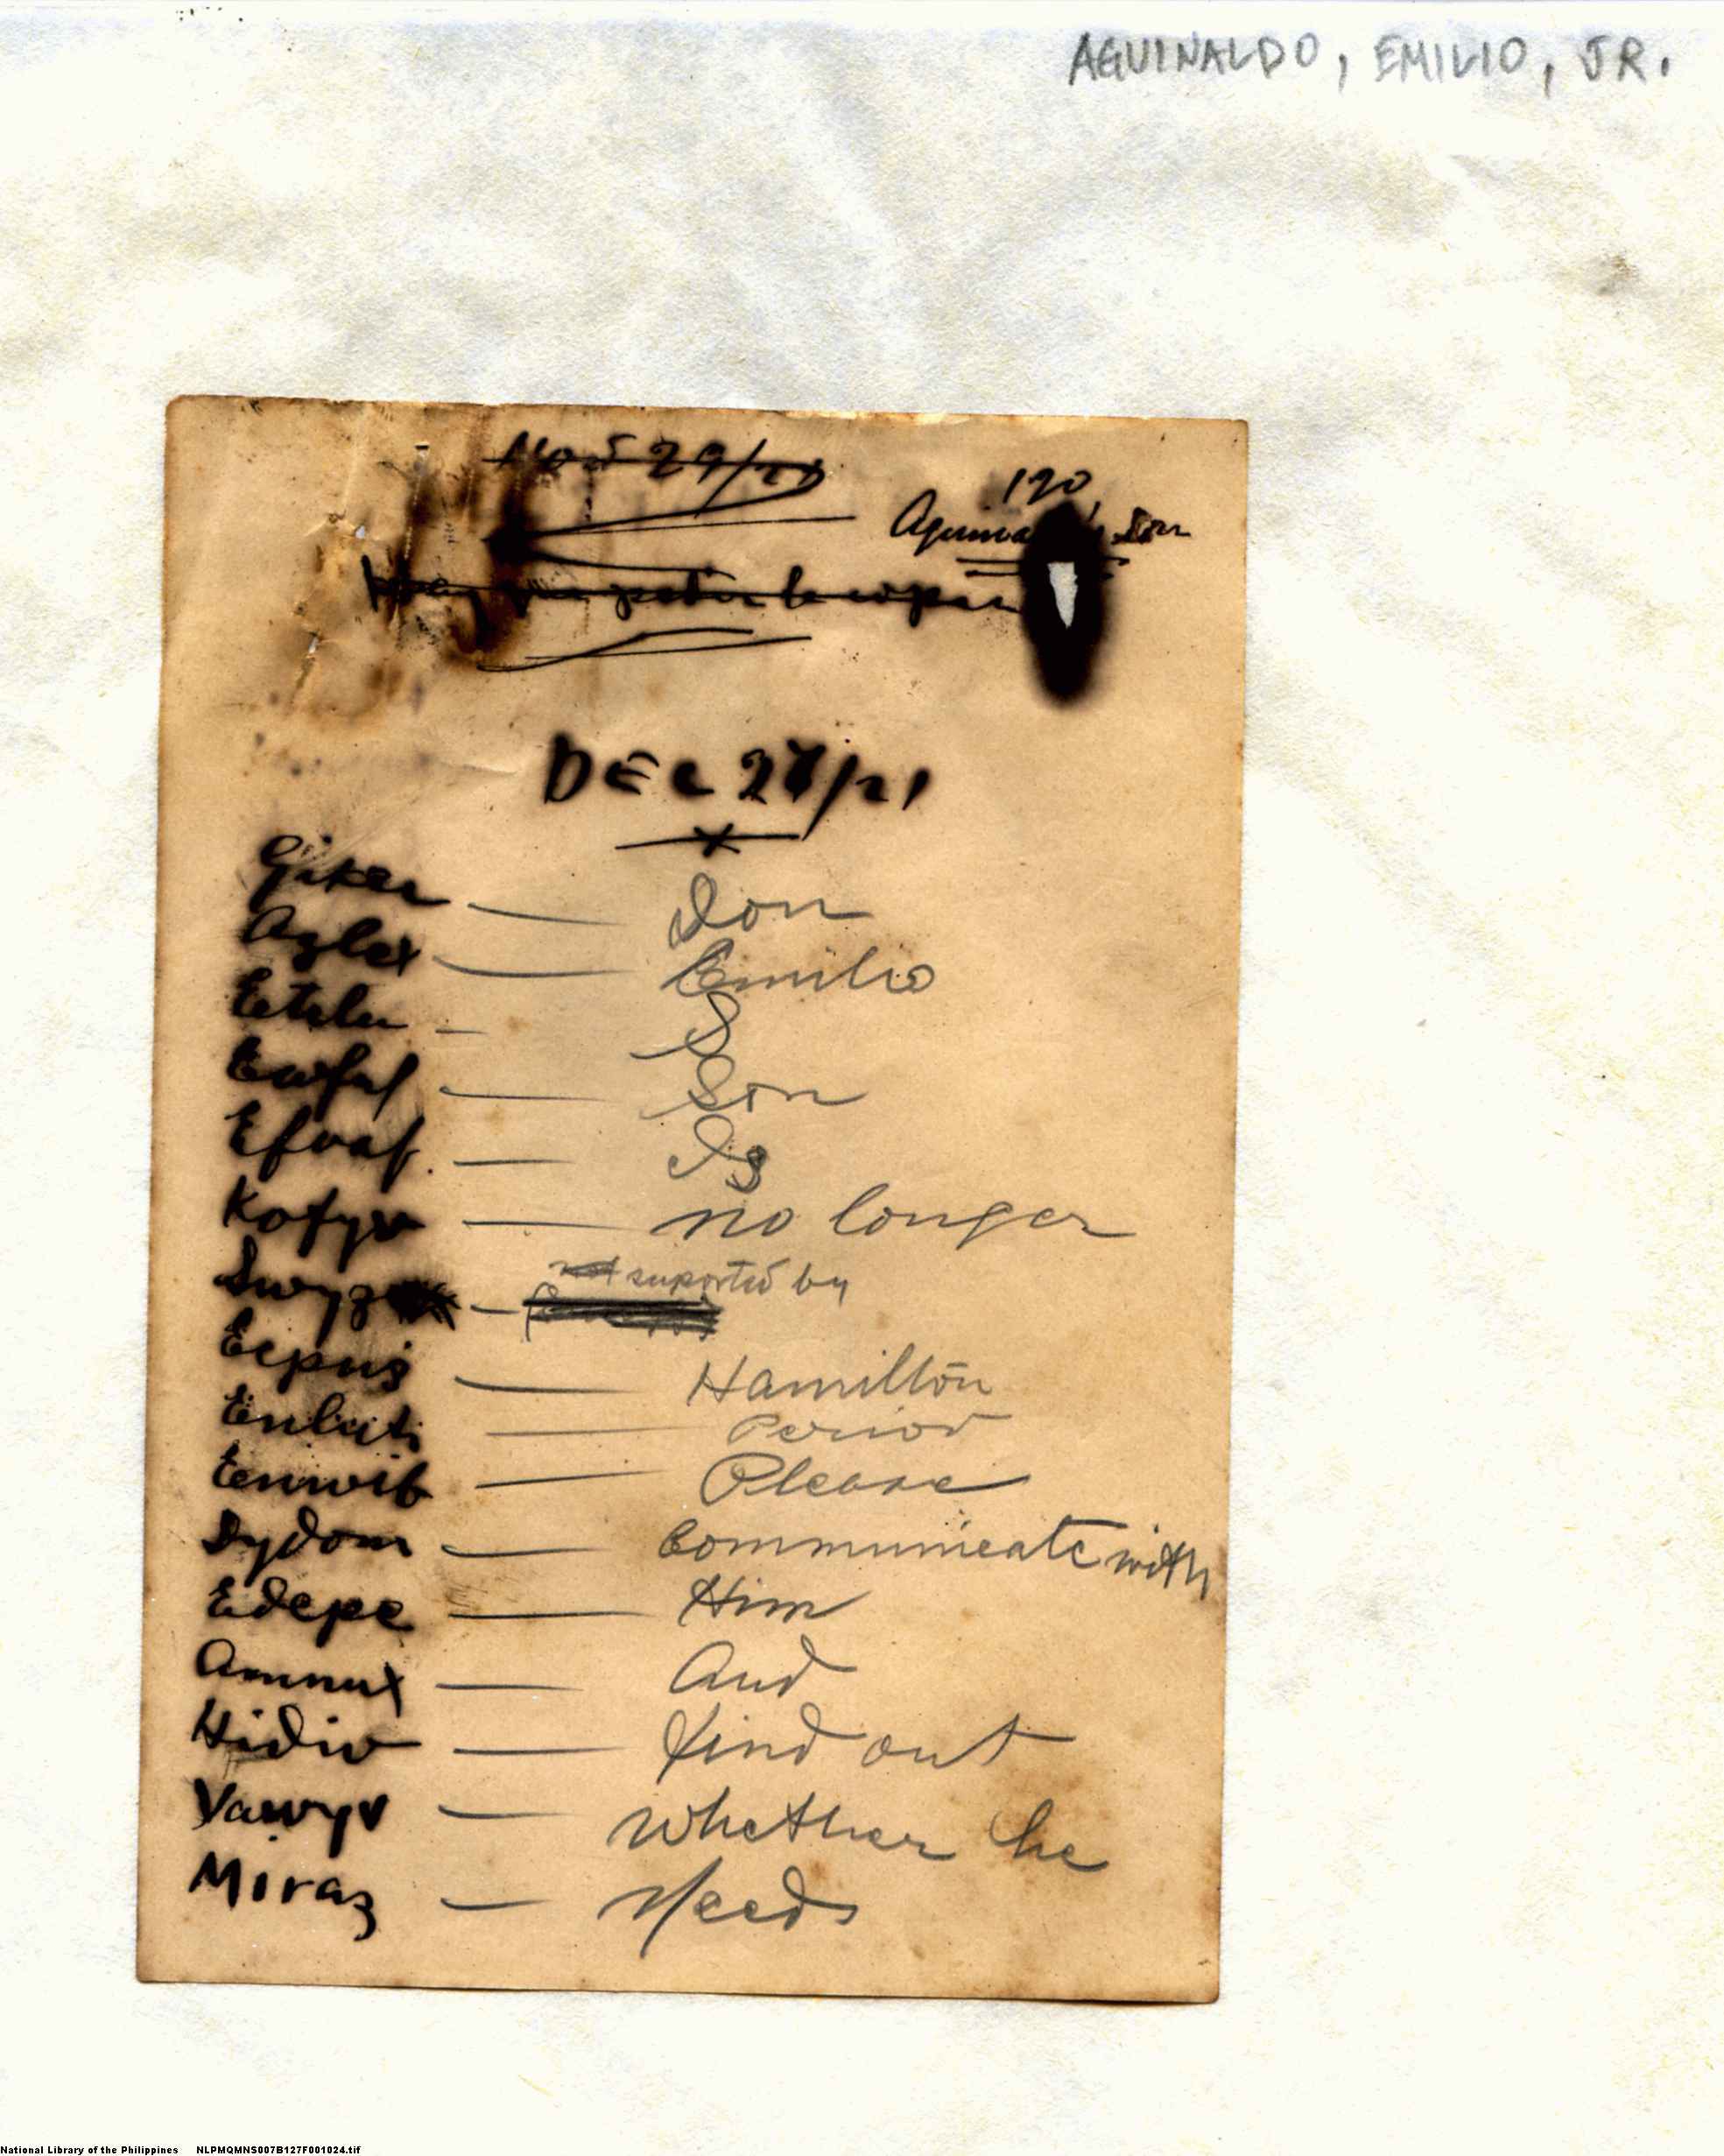 AGUINALDO, EMILIO, JR.
Nov 29/21
190
Aguina Son
pedir la copia
DEC 27/21
Giker — Don
Azlex — Emilio
— S
Ewful — Son
Efvaf. — Is
Kofyv — no longer
suported by
Swyz —
Ecpuz — Hamilton
Enluti — Period
Eenwib — Please
Dydom — Communicate with
Edepe — Him
Amnux — And
Hidiv — find out
Vawyv — whether he
Miraz — Needs
National Library of the Philippines NLPMQMNS007B127F001024.tif